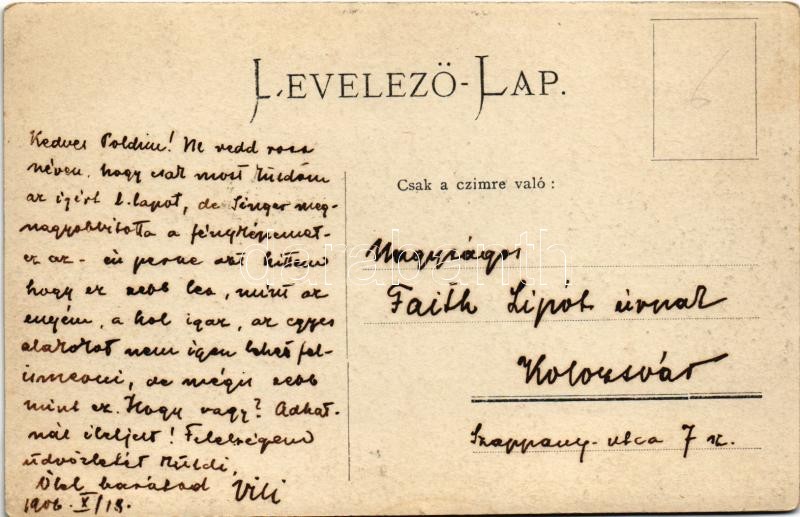 LEVELEZÖ-LAP.
6
Kedves Poldim! Ne vedd rossz
néven, hogy csak most küldöm
az igért l. lapot, de Singer meg-
nagyobbitotta a fényképemet
ez az - én persze azt hittem
hogy ez szebb lesz, mint az
enyém, a hol igaz, az egyes
alakokat nem igen lehet fel-
ismerni, de mégis szebb
mint ez. Hogy vagy? Adhat-
nál életjelt! Feleségem
üdvözletét küldi,
Ölel barátod Vili
1906. X/18.
Csak a czimre való:
Nagyságos
Faith Lipót úrnak
Kolozsvár
Szappany-utca 7 sz.
darabanth